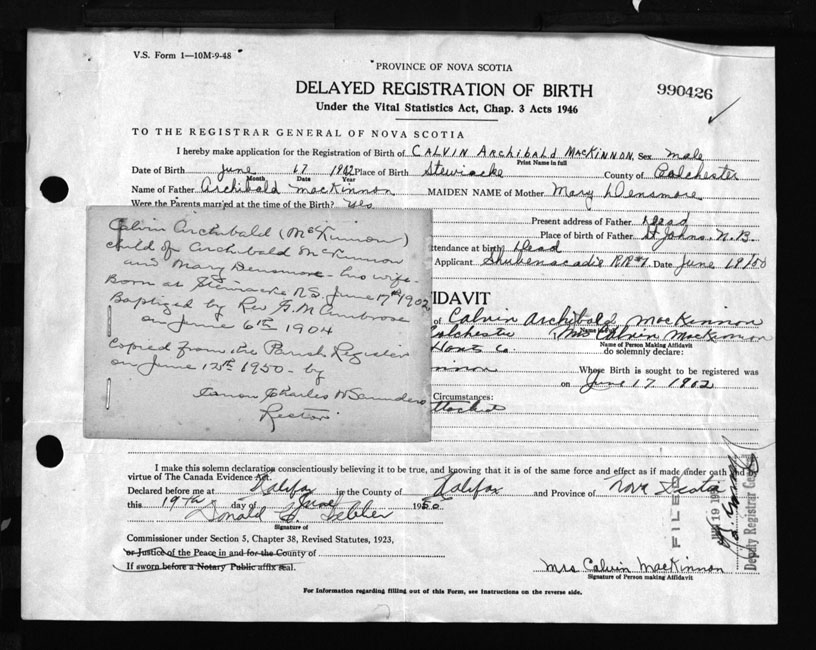 V.S. Form 1—10M-9-48
PROVINCE OF NOVA SCOTIA
DELAYED REGISTRATION OF BIRTH
990426
Under the Vital Statistics Act, Chap. 3 Acts 1946
TO THE REGISTRAR GENERAL OF NOVA SCOTIA
I hereby make application for the Registration of Birth of CALVIN ARCHIBALD MACKINNON, Sex male
Print Name in full
Date of Birth June 17 1902 Place of Birth Stewiacke County of Colchester
Month Date Year
Name of Father Archibald MacKinnon MAIDEN NAME of Mother Mary Densmore
Were the Parents married at the time of the Birth? Yes
Present address of Father Dead
Place of birth of Father St Johns. N.B.
ttendance at birth Dead
Applicant Shubenacadie RR#1. Date June 19/50
Calvin Archibald (McKinnon)
child of Archibald McKinnon
and Mary Densmore his wife.
Born at Stewiacke N.S. June 17th 1902
Baptized by Rev G. M Ambrose
on June 6th 1904
Copied from the Parish Register
on June 13th 1950 - by
Canon Charles W Saunders
Rector.
FIDAVIT
of Calvin Archibald MacKinnon
Colchester Mrs Calvin MacKinnon
Name of Person Making Affidavit
Hants Co. do solemnly declare:
innon Whose Birth is sought to be registered was
on June 17 1902
Circumstances:
ttached
I make this solemn declaration conscientiously believing it to be true, and knowing that it is of the same force and effect as if made under oath and by
virtue of The Canada Evidence Act.
Declared before me at Halifax in the County of Halifax and Province of Nova Scotia
this 19th day of June 1950
Donald
Signature of
Commissioner under Section 5, Chapter 38, Revised Statutes, 1923,
or Justice of the Peace in and for the County of
If sworn before a Notary Public affix seal.
Mrs Calvin MacKinnon
Signature of Person making Affidavit
FILED
19
Deputy Registrar General
For Information regarding filling out of this Form, see Instructions on the reverse side.